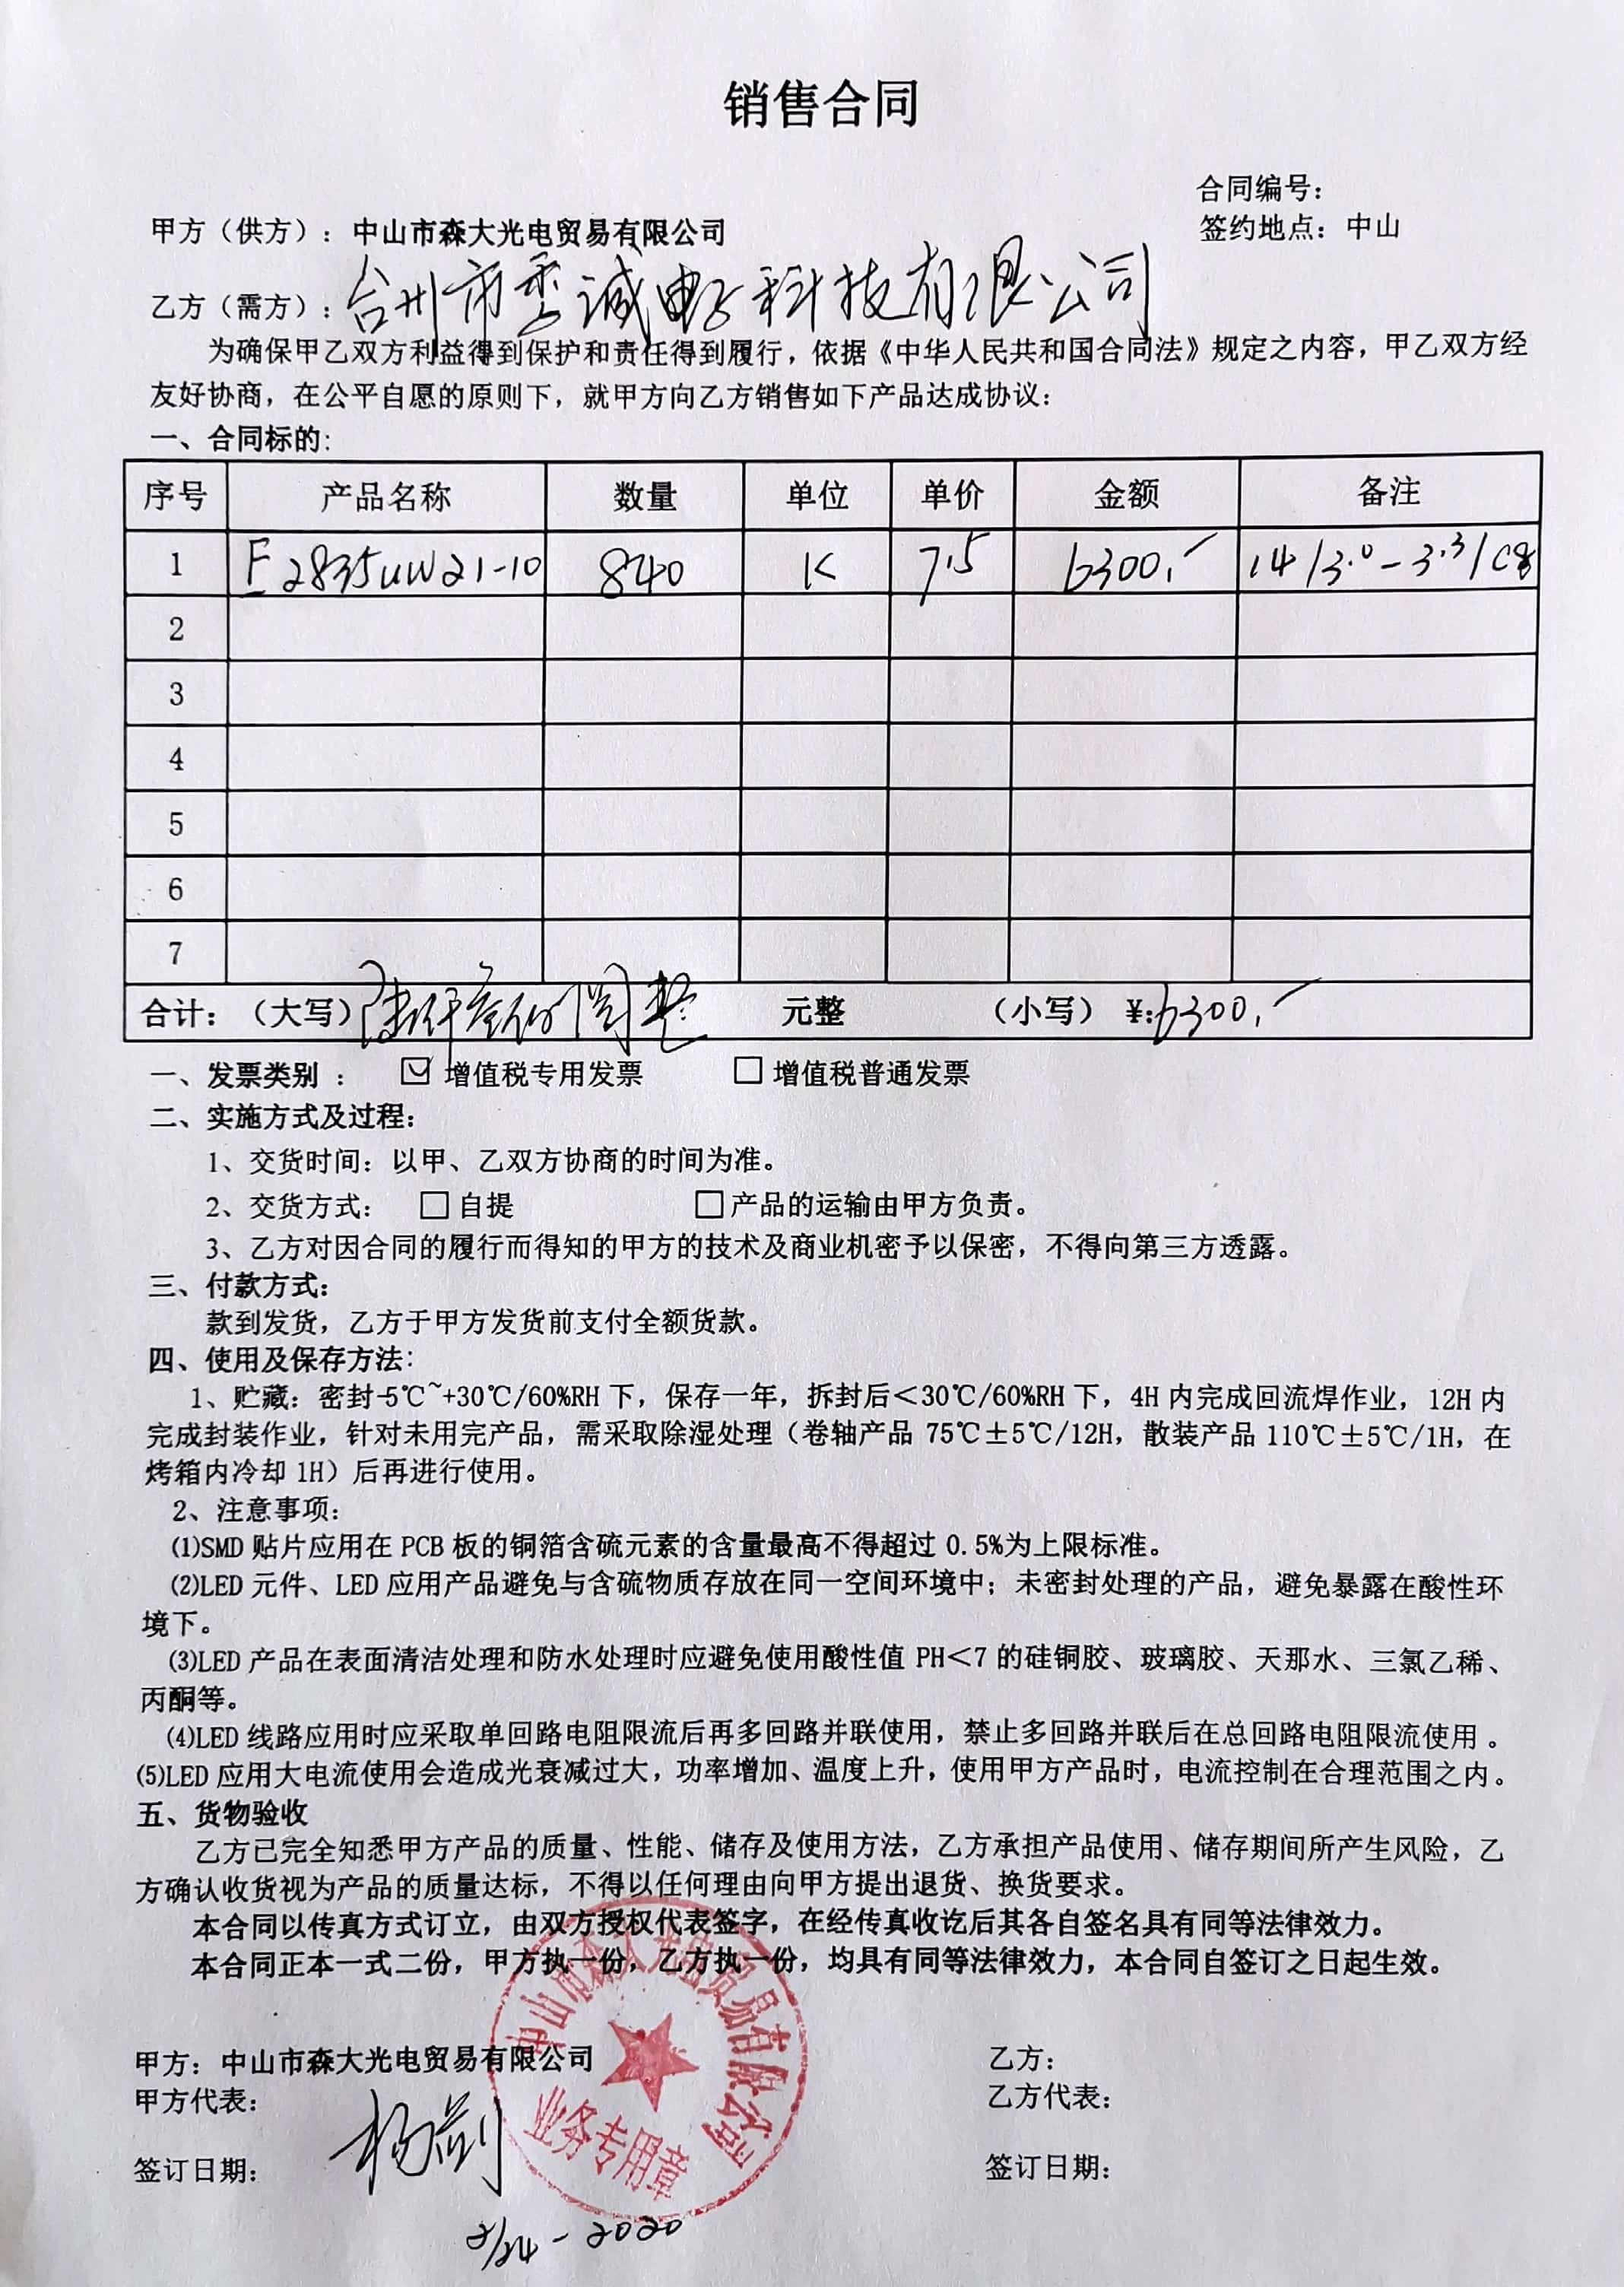 销售合同
合同编号：
甲方（供方）：中山市森大光电贸易有限公司
签约地点：中山
乙方（需方）：台州市秀诚电子科技有限公司
为确保甲乙双方利益得到保护和责任得到履行，依据《中华人民共和国合同法》规定之内容，甲乙双方经
友好协商，在公平自愿的原则下，就甲方向乙方销售如下产品达成协议：
一、合同标的：
序号 产品名称 数量 单位 单价 金额 备注
1 F2835UW21-10 840 K 7.5 6300.- 14/3.0-3.3/C8
2
3
4
5
6
7
合计：（大写）陆仟叁佰圆整 元整 （小写）¥:6300.-
一、发票类别 ： ☑ 增值税专用发票 □ 增值税普通发票
二、实施方式及过程：
1、交货时间：以甲、乙双方协商的时间为准。
2、交货方式： □ 自提 □产品的运输由甲方负责。
3、乙方对因合同的履行而得知的甲方的技术及商业机密予以保密，不得向第三方透露。
三、付款方式：
款到发货，乙方于甲方发货前支付全额货款。
四、使用及保存方法：
1、贮藏：密封-5℃~+30℃/60%RH 下，保存一年，拆封后＜30℃/60%RH 下，4H 内完成回流焊作业，12H 内
完成封装作业，针对未用完产品，需采取除湿处理（卷轴产品 75℃±5℃/12H，散装产品 110℃±5℃/1H，在
烤箱内冷却 1H）后再进行使用。
2、注意事项：
⑴SMD 贴片应用在 PCB 板的铜箔含硫元素的含量最高不得超过 0.5%为上限标准。
⑵LED 元件、LED 应用产品避免与含硫物质存放在同一空间环境中；未密封处理的产品，避免暴露在酸性环
境下。
⑶LED 产品在表面清洁处理和防水处理时应避免使用酸性值 PH＜7 的硅铜胶、玻璃胶、天那水、三氯乙稀、
丙酮等。
⑷LED 线路应用时应采取单回路电阻限流后再多回路并联使用，禁止多回路并联后在总回路电阻限流使用 。
⑸LED 应用大电流使用会造成光衰减过大，功率增加、温度上升，使用甲方产品时，电流控制在合理范围之内。
五、货物验收
乙方已完全知悉甲方产品的质量、性能、储存及使用方法，乙方承担产品使用、储存期间所产生风险，乙
方确认收货视为产品的质量达标，不得以任何理由向甲方提出退货、换货要求。
本合同以传真方式订立，由双方授权代表签字，在经传真收讫后其各自签名具有同等法律效力。
本合同正本一式二份，甲方执一份，乙方执一份，均具有同等法律效力，本合同自签订之日起生效。
中山市森大光电贸易有限公司
业务专用章
甲方：中山市森大光电贸易有限公司 乙方：
甲方代表：杨剑 乙方代表：
签订日期： 签订日期：
2/24-2020